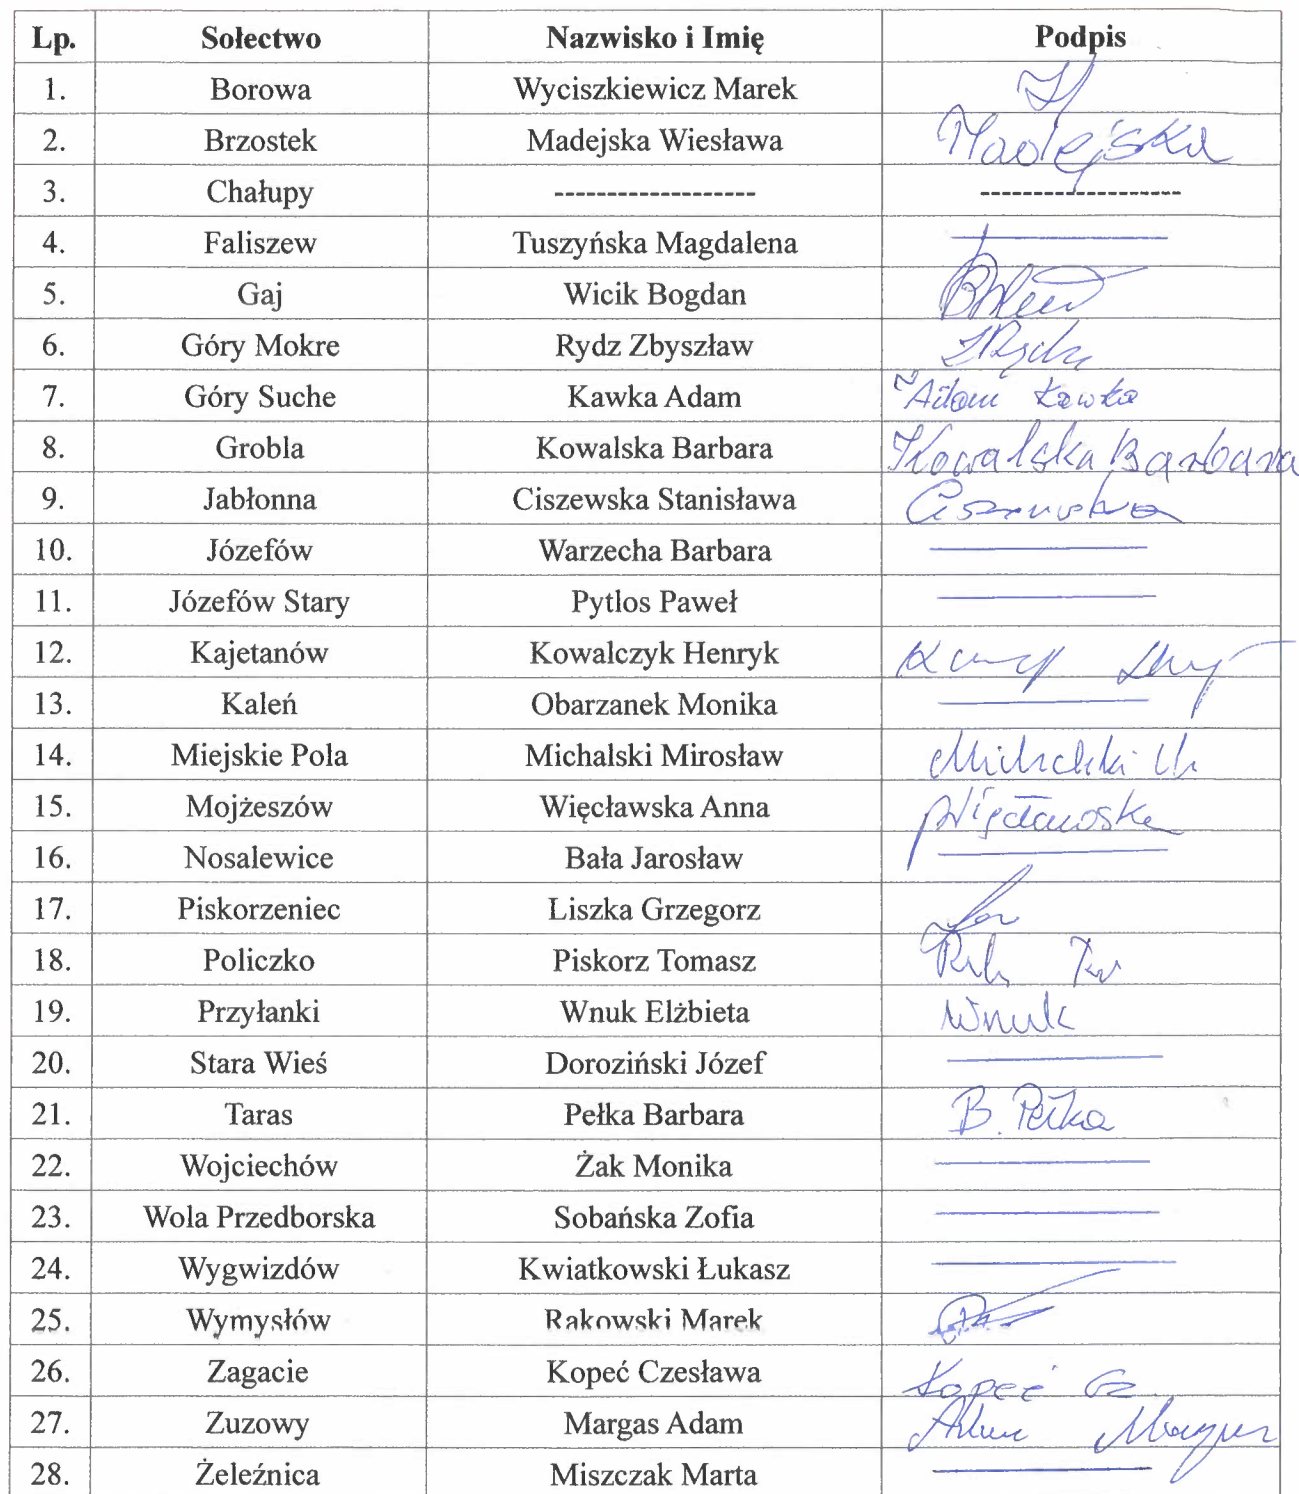 Lp. Sołectwo Nazwisko i Imię Podpis
1. Borowa Wyciszkiewicz Marek
2. Brzostek Madejska Wiesława Madejska
3. Chałupy ------------------ ------------------
4. Faliszew Tuszyńska Magdalena
5. Gaj Wicik Bogdan
6. Góry Mokre Rydz Zbyszław
7. Góry Suche Kawka Adam Adam Kawka
8. Grobla Kowalska Barbara Kowalska Barbara
9. Jabłonna Ciszewska Stanisława Ciszewska
10. Józefów Warzecha Barbara
11. Józefów Stary Pytlos Paweł
12. Kajetanów Kowalczyk Henryk
13. Kaleń Obarzanek Monika
14. Miejskie Pola Michalski Mirosław Michalski M
15. Mojżeszów Więcławska Anna Więcławska
16. Nosalewice Bała Jarosław
17. Piskorzeniec Liszka Grzegorz
18. Policzko Piskorz Tomasz
19. Przyłanki Wnuk Elżbieta Wnuk
20. Stara Wieś Doroziński Józef
21. Taras Pełka Barbara B. Pełka
22. Wojciechów Żak Monika
23. Wola Przedborska Sobańska Zofia
24. Wygwizdów Kwiatkowski Łukasz
25. Wymysłów Rakowski Marek
26. Zagacie Kopeć Czesława Kopeć Cz
27. Zuzowy Margas Adam Adam Margas
28. Żeleźnica Miszczak Marta